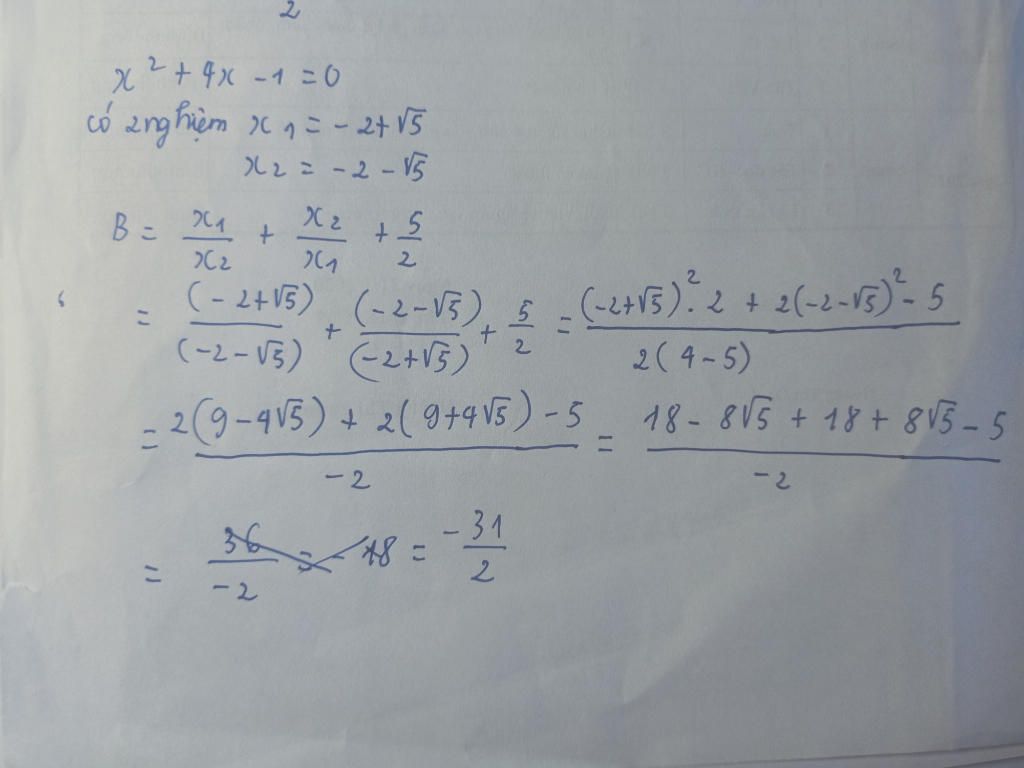 2
x² + 4x - 1 = 0
có 2 nghiệm x₁ = -2 + √5
x₂ = -2 - √5
B = x₁/x₂ + x₂/x₁ + 5/2
= (-2+√5)/(-2-√5) + (-2-√5)/(-2+√5) + 5/2 = ((-2+√5)².2 + 2(-2-√5)² - 5)/(2(4-5))
= (2(9-4√5) + 2(9+4√5) - 5)/(-2) = (18 - 8√5 + 18 + 8√5 - 5)/(-2)
= 36/-2 = -18 = -31/2